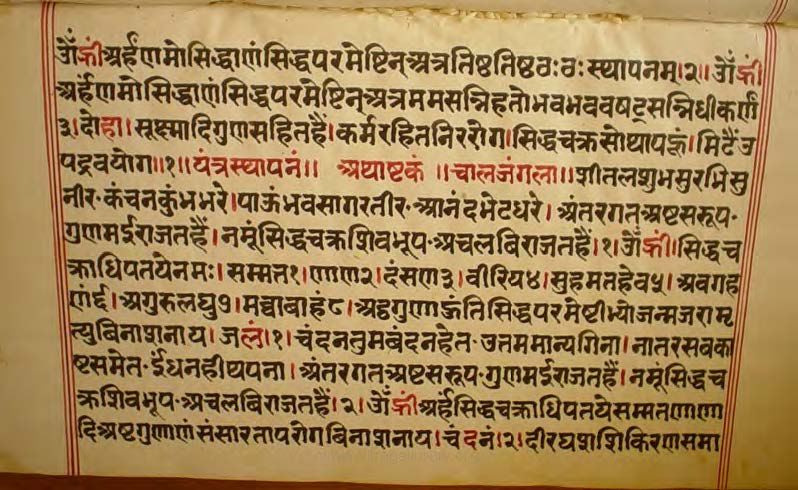 ॐह्रींअर्हंणमोसिद्धाणंसिद्धपरमेष्टिन्अत्रतिष्ठतिष्ठठःठःस्थापनम्।२॥ॐह्रीं
अर्हंणमोसिद्धाणंसिद्धपरमेष्टिन्अत्रममसन्निहतोभवभववषट्सन्निधीकर्णं
३।दोहा।सूक्ष्मादिगुणसहितहैं।कर्मरहितनिररोग।सिद्धचक्रसोथापहूं।मिटैंउ
पद्रवयोग॥१॥यंत्रस्थापनं॥ अथाष्टकं ॥चालजंगला॥शीतलशुभसुरभिसु
नीर·कंचनकुंभभरे।पाऊंभवसागरतीर·आनंदभेटधरे।अंतरगतअष्टसरूप·
गुणमईराजतहैं।नमूंसिद्धचक्रशिवभूप·अचलबिराजतहैं।१।ॐह्रीं।सिद्धच
क्राधिपतयेनमः।सम्मत१।णाण२।दंसण३।वीरिय४।सुहमतहेव५।अवगह
णं६।अगुरुलघु७।मव्वाबाहं८।अट्ठगुणाहूंतिसिद्धपरमेष्टीभ्योजन्मजरामृ
त्युबिनाशनाय।जलं।१।चंदनतुमबंदनहेत·उत्तममान्यगिना।नातरसबका
ष्टसमेत·ईंधनहीथपना।अंतरगतअष्टसरूप·गुणमईराजतहैं।नमूंसिद्धच
क्रशिवभूप·अचलबिराजतहैं।२।ॐह्रींअर्हंसिद्धचक्राधिपतयेसम्मतणाणा
दिअष्टगुणाणंसंसारतापरोगबिनाशनाय।चंदनं।२।दीरघशशिकिरणसमा